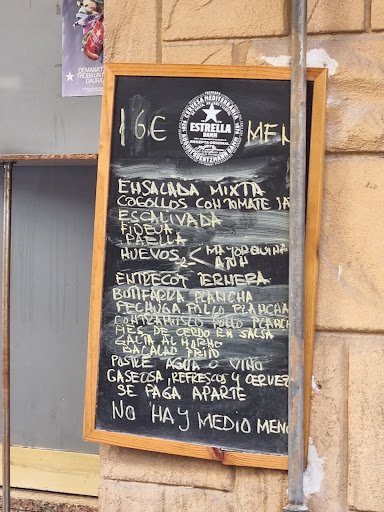 DEMANA'T
TROBA UN
16€ MEN
CERVESA MEDITERRÀNIA
ESTRELLA
DAMM
RECEPTA ORIGINAL
ENSALADA MIXTA
COGOLLOS CON TOMATE
ESCALIVADA
FIDEUA
PAELLA
HUEVOS < MAYORQUINA
ENTRECOT TERNERA
BUTIFARRA PLANCHA
PECHUGA POLLO PLANCHA
CONTRAMUSLO POLLO PLANCH
PIES DE CERDO EN SALSA
GALTA AL HORNO
BACALAO FRIO
POSTRE AGUA O VINO
GASEOSA, REFRESCOS Y CERVEZ
SE PAGA APARTE
NO HAY MEDIO MEN